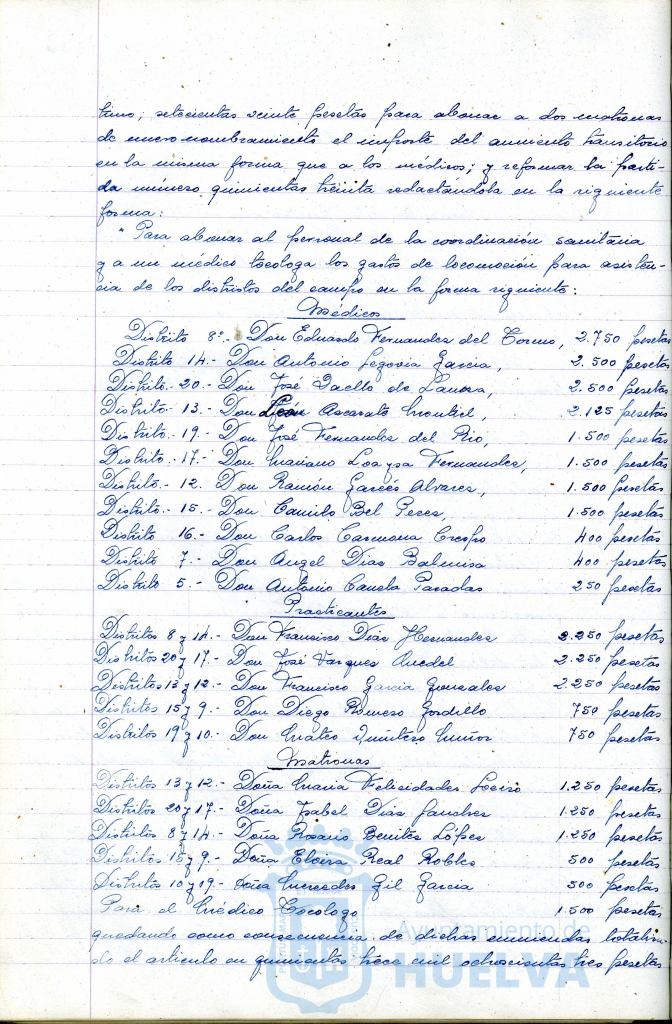 timo; setecientas veinte pesetas para abonar a dos matronas
de nuevo nombramiento el importe del aumento transitorio
en la misma forma que a los médicos; y reformar la parti-
da número quinientas treinta redactándola en la siguiente
forma:
"Para abonar al personal de la coordinación sanitaria
y a un médico tocólogo los gastos de locomoción para asisten-
cia de los distritos del campo en la forma siguiente:
Médicos
Distrito 8º.- Don Eduardo Fernandez del Torno, 2.750 pesetas
Distrito 14.- Don Antonio Segovia Garcia, 2.500 pesetas
Distrito.- 20.- Don José de 2.500 pesetas
Distrito.- 13.- Don León Ascarate Montiel, 2.125 pesetas
Distrito.- 19.- Don José Fernandez del Rio, 1.500 pesetas
Distrito.- 17.- Don Mariano Loaysa Fernandez, 1.500 pesetas
Distrito.- 12. Don Ramón Garcés Alvarez, 1.500 pesetas
Distrito.- 15.- Don Camilo Bel Perez, 1.500 pesetas
Distrito 16.- Don Carlos Carmona Crespo 400 pesetas
Distrito 7.- Don Angel Dias 400 pesetas
Distrito 5.- Don Antonio Canela Paradas 250 pesetas
Practicantes
Distritos 8 y 14.- Don Francisco Dias Hernandez 2.250 pesetas
Distritos 20 y 17.- Don José Vazquez 2.250 pesetas
Distritos 13 y 12.- Don Francisco Garcia Gonzalez 2.250 pesetas
Distritos 15 y 9.- Don Diego Romero Gordillo 750 pesetas
Distritos 19 y 10.- Don Mateo Quintero Muñoz 750 pesetas
Matronas
Distritos 13 y 12.- Doña Maria Felicidades 1.250 pesetas
Distritos 20 y 17.- Doña Isabel Dias Sanchez 1.250 pesetas
Distritos 8 y 14.- Doña Rosario Benites López 1.250 pesetas
Distritos 15 y 9.- Doña Elvira Real Robles 500 pesetas
Distritos 10 y 19.- Doña Mercedes Gil Garcia 500 pesetas
Para el Médico Tocologo 1.500 pesetas
quedando como consecuencia de dichas enmiendas totalizan-
do el articulo en quinientas trece mil ochocientas tres pesetas
Ayuntamiento de
HUELVA